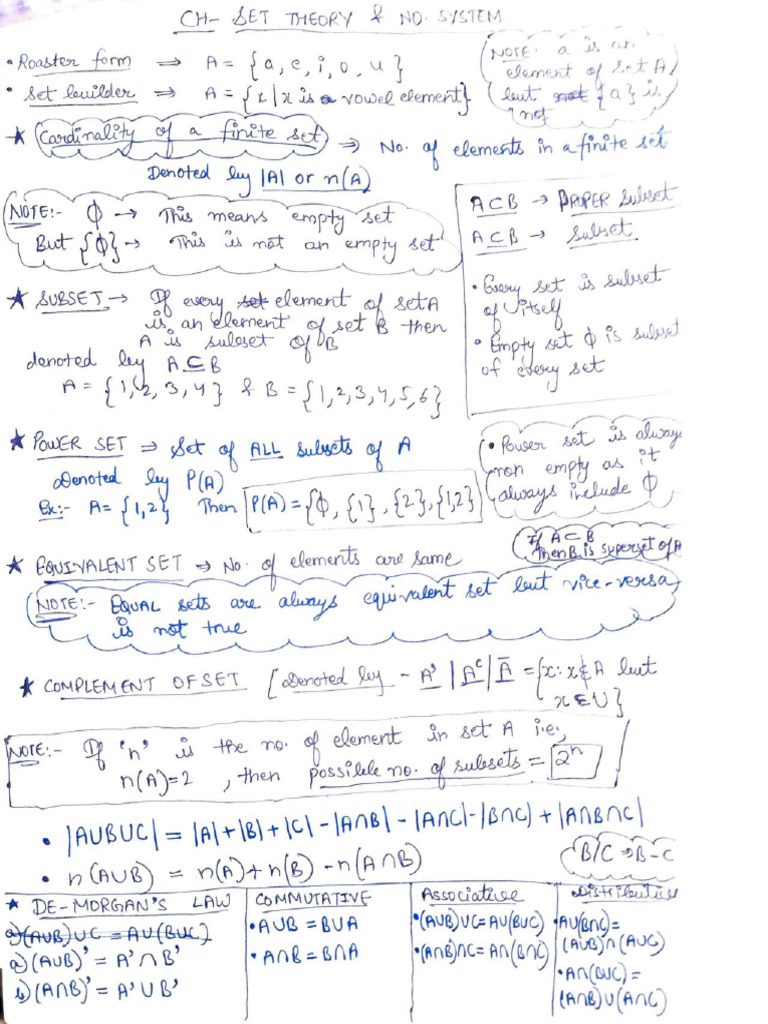 CH- SET THEORY & NO. SYSTEM
• Roaster form ⇒ A = {a, e, i, o, u}
• Set builder ⇒ A = {x | x is a vowel element}
NOTE:- a is an
element of set A
but {a} is
not
★ Cardinality of a finite set ⇒ No. of elements in a finite set
Denoted by |A| or n(A)
NOTE:- ϕ → This means empty set
But {ϕ} → This is not an empty set
A⊂B → PROPER Subset
A⊆B → Subset
• Every set is subset
of itself
• Empty set ϕ is subset
of every set
★ SUBSET → If every set element of set A
is an element of set B then
A is subset of B
denoted by A⊆B
A = {1,2,3,4} & B = {1,2,3,4,5,6}
★ POWER SET ⇒ Set of ALL subsets of A
Denoted by P(A)
Ex:- A = {1,2} Then P(A) = {ϕ, {1}, {2}, {1,2}
• Power set is always
non empty as it
always include ϕ
If A⊂B
then B is superset of A
★ EQUIVALENT SET → No. of elements are same
NOTE:- EQUAL sets are always equivalent set but vice-versa
is not true
★ COMPLEMENT OF SET [Denoted by - A' | Aᶜ | Ā = {x: x∉A but
x∈U}
NOTE:- If 'n' is the no. of element in set A i.e.,
n(A)=2 , then possible no. of subsets = 2ⁿ
• |A∪B∪C| = |A|+|B|+|C| -|A∩B| -|A∩C|-|B∩C| + |A∩B∩C|
• n(A∪B) = n(A)+n(B) - n(A∩B)
B/C ⇒ B-C
★ DE-MORGAN'S LAW
a) (A∪B)∪C = A∪(B∪C)
a) (A∪B)' = A'∩B'
b) (A∩B)' = A'∪B'
COMMUTATIVE
• A∪B = B∪A
• A∩B = B∩A
Associative
• (A∪B)∪C=A∪(B∪C)
• (A∩B)∩C=A∩(B∩C)
Distributive
• A∪(B∩C)=
(A∪B)∩(A∪C)
• A∩(B∪C)=
(A∩B)∪(A∩C)